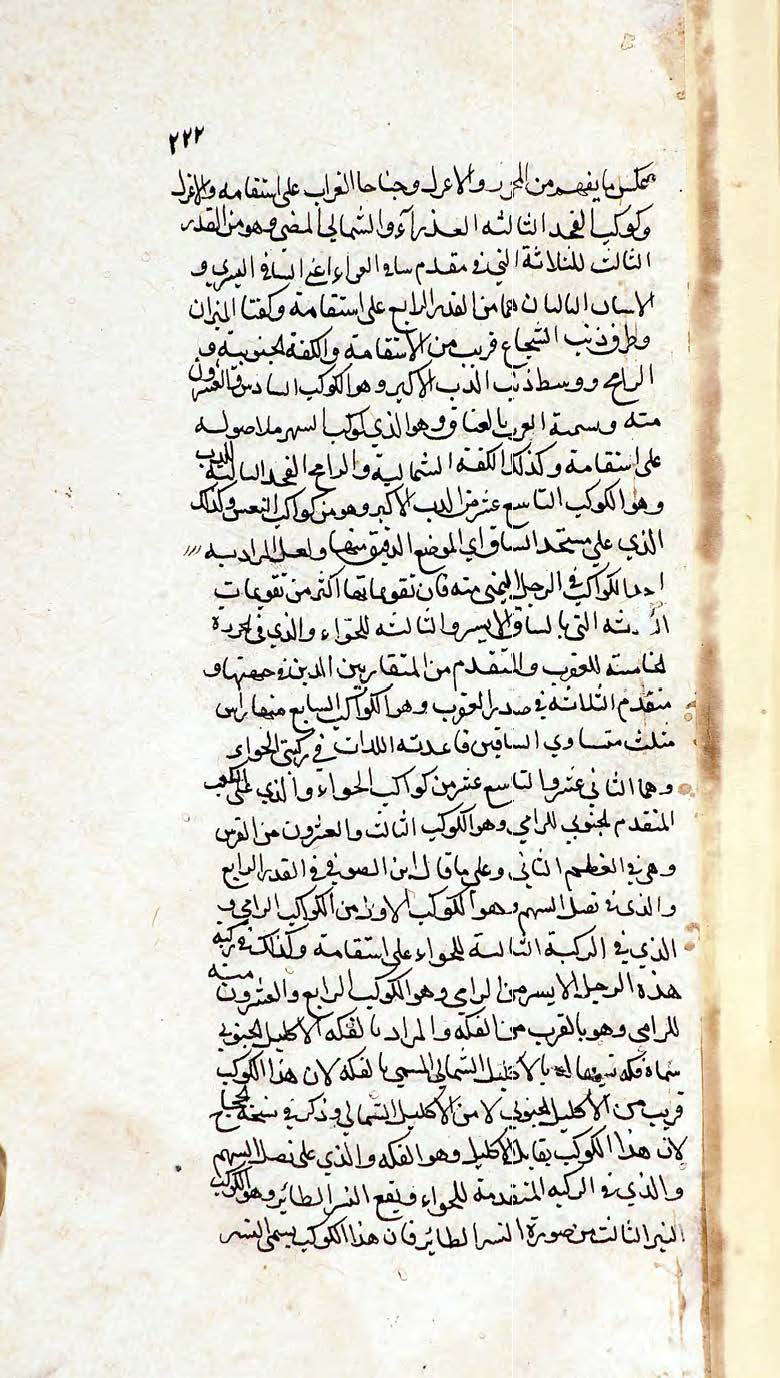 ٢٢٢
بعكس ما يفهم من المحرر والاعزل وجناحا الغراب على استقامه والاعزل
وكوكب الفخذ التالثه العذرآء والشمالي المضي وهو من القدر
الثالث للثلاثة التي في مقدم ساق العواء اعني الساق اليسري و
الاسان التاليان هما من القدر الرابع على استقامة وكفتا الميزان
وطرف ذنب الشجاع قريب من الاستقامة والكفه الجنوبيه و
الرامح ووسط ذنب الدب الاكبر وهو الكوكب السادس والعشرون
منه ويسميه العرب بالعناق وهو الذي كوكب السهر ملاصق له
على استقامة وكذلك الكفة الشمالية والرامح الفخد التالية للدب
وهو الكوكب التاسع عشر من الدب الاكبر وهو من كواكب النعش وكذلك
الذي على مستحد الساق اي الموضع الدقيق منها ولعل المراد به
احد الكواكب في الرجل اليمنى منه فان تقويماتها اكثر من تقويمات
الثلاثه التي بالساق الايسر والثالثه للحواء والذي في الخرزة
الخامسه للعقرب والمتقدم من المتقاربين الذين في حمتها و
متقدم الثلاثه في صدر العقرب وهو الكواكب السابع منها راس
مثلث متساوي الساقين قاعدته اللذان في ركبتي الحواء
وهما الثاني عشر والتاسع عشر من كواكب الحواء والذي على الكعب
المتقدم الجنوبي للرامي وهو الكوكب الثالث والعشرون من القوس
وهي في العظم الثاني وعلى ما قال ابن الصوفي في القدر الرابع
والذي في نصل السهم وهو الكوكب الاول من الكواكب الرامي و
الذي في الركبة الثالثة للحواء على استقامة وكذلك في ركبة
هذه الرجل الايسر من الرامي وهو الكوكب الرابع والعشرون منه
للرامي وهو بالقرب من الفكه والمراد بالفكه الاكليل الجنوبي
سماه فكه تشبيها له بالاكليل الشمالي المسمي بالفكه لان هذا الكوكب
قريب من الاكليل الجنوبي لا من الاكليل الشمالي وذكر في نسخة الحجاج
لان هذا الكوكب يقابل الاكليل وهو الفكه والذي على نصل السهم
والذي في الركبه المتقدمة للحواء ويقع النسر الطائر وهو الكوكب
النير الثالث من صورة النسر الطائر فان هذا الكوكب يسمى النسر